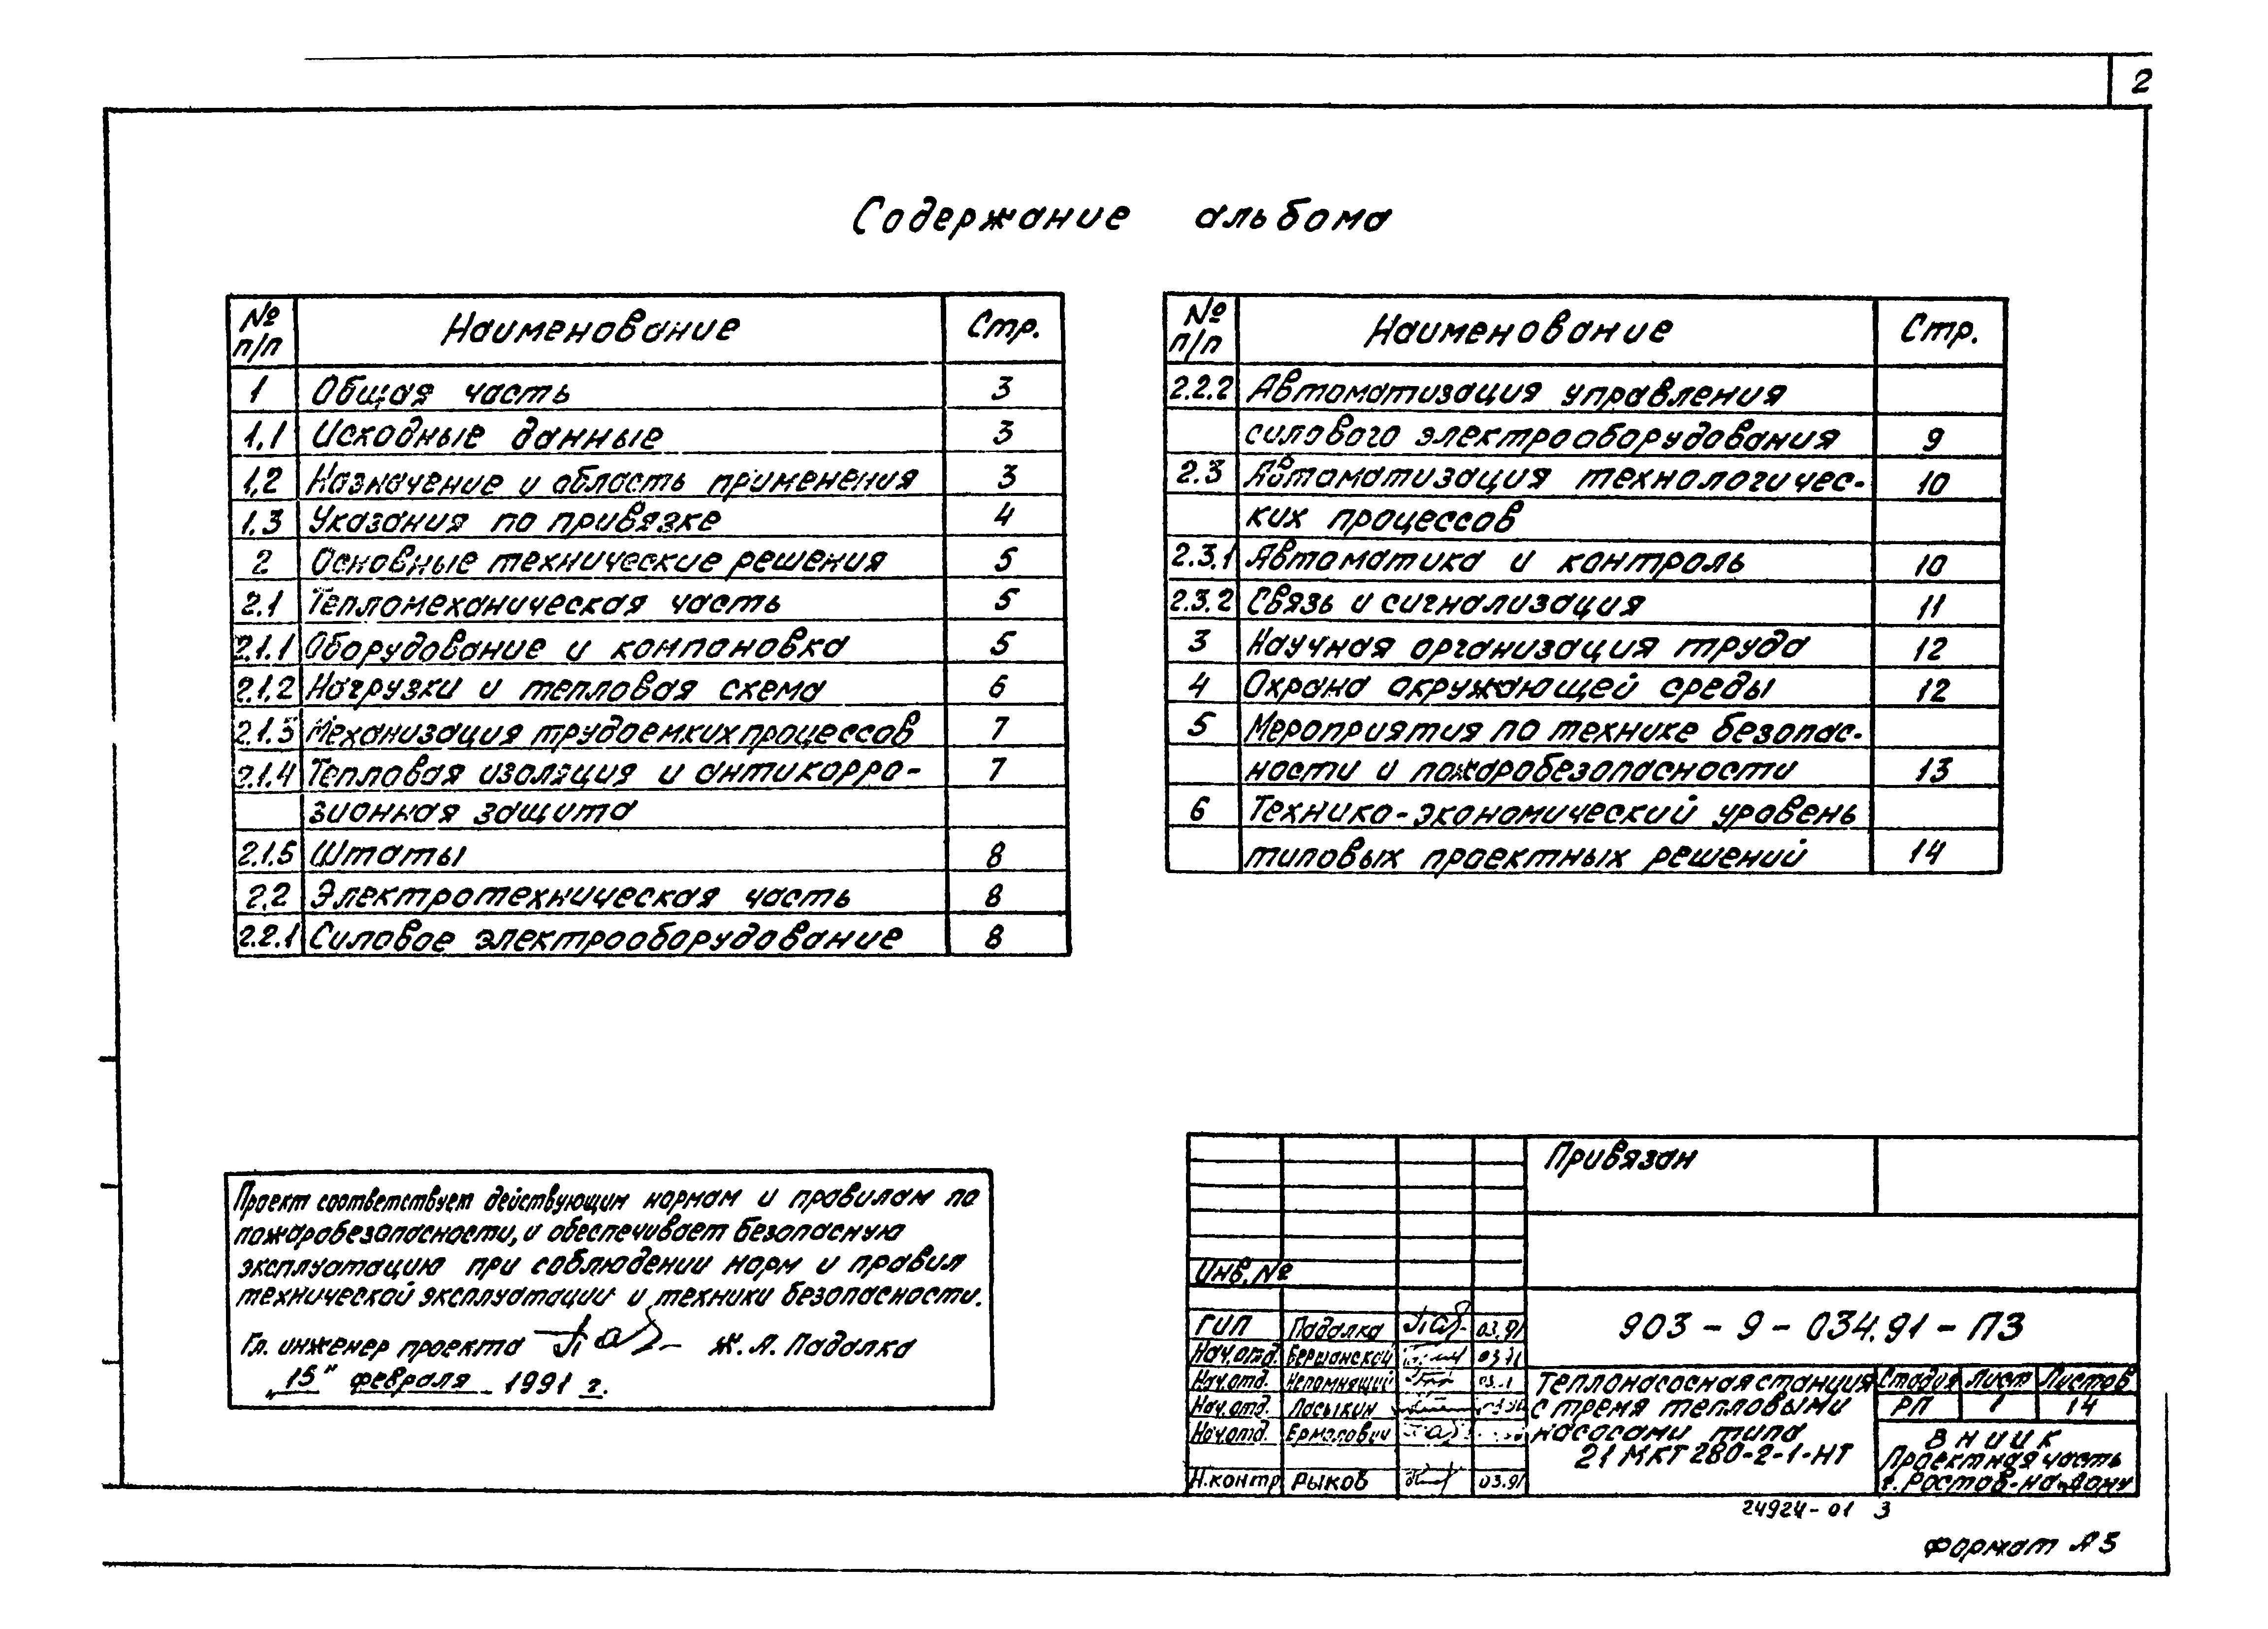 2
Содержание альбома
№ п/п Наименование Стр.
1 Общая часть 3
1.1 Исходные данные 3
1.2 Назначение и область применения 3
1.3 Указания по привязке 4
2 Основные технические решения 5
2.1 Тепломеханическая часть 5
2.1.1 Оборудование и компановка 5
2.1.2 Нагрузки и тепловая схема 6
2.1.3 Механизация трудоемких процессов 7
2.1.4 Тепловая изоляция и антикорро- 7
зионная защита
2.1.5 Штаты 8
2.2 Электротехническая часть 8
2.2.1 Силовое электрооборудование 8
№ п/п Наименование Стр.
2.2.2 Автоматизация управления
силового электрооборудования 9
2.3 Автоматизация технологичес- 10
ких процессов
2.3.1 Автоматика и контроль 10
2.3.2 Связь и сигнализация 11
3 Научная организация труда 12
4 Охрана окружающей среды 12
5 Мероприятия по технике безопас-
ности и пожаробезопасности 13
6 Технико-экономический уровень
типовых проектных решений 14
Проект соответствует действующим нормам и правилам по
пожаробезопасности, и обеспечивает безопасную
эксплуатацию при соблюдении норм и правил
технической эксплуатации и техники безопасности.
Гл. инженер проекта Ж.А. Падалка
„15" февраля 1991 г.
Привязан
Инв.№
903-9-034.91-ПЗ
ГИП Падалка 03.91
Нач.отд. Бершанской
Нач.отд. Непомнящий
Нач.отд. Ласыкин
Нач.отд. Ермолович
Н.контр Рыков 03.91
Теплонасосная станция
с тремя тепловыми
насосами типа
21 МКТ 280-2-1-НТ
Стадия Лист Листов
РП 1 14
ВНИИК
Проектная часть
г. Ростов-на-Дону
24924-01 3
Формат А3